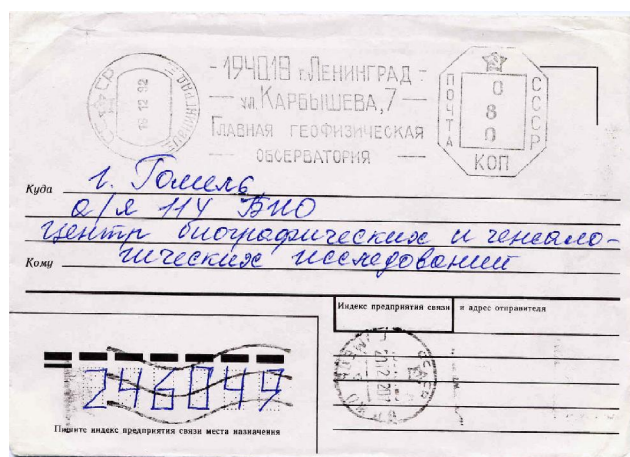 СССР
16 12 92
ЛЕНИНГРАД
194018 г. ЛЕНИНГРАД
ул. КАРБЫШЕВА, 7
ГЛАВНАЯ ГЕОФИЗИЧЕСКАЯ
ОБСЕРВАТОРИЯ
ПОЧТА
СССР
080
КОП
Куда г. Гомель
а/я 114 БНО
центр биографических и генеало-
Кому гических исследований
Индекс предприятия связи и адрес отправителя
246049
Пишите индекс предприятия связи места назначения